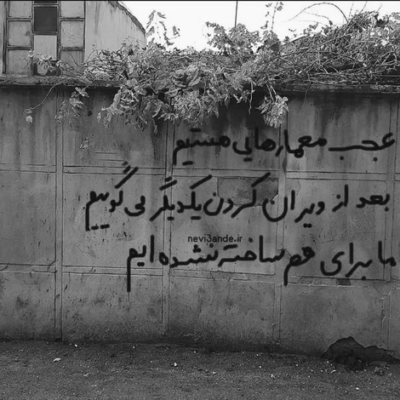 عجب معمارهایی هستیم
بعد از ویران کردن یکدیگر می گوییم
nevi3ande.ir
ما برای هم ساخته نشده ایم